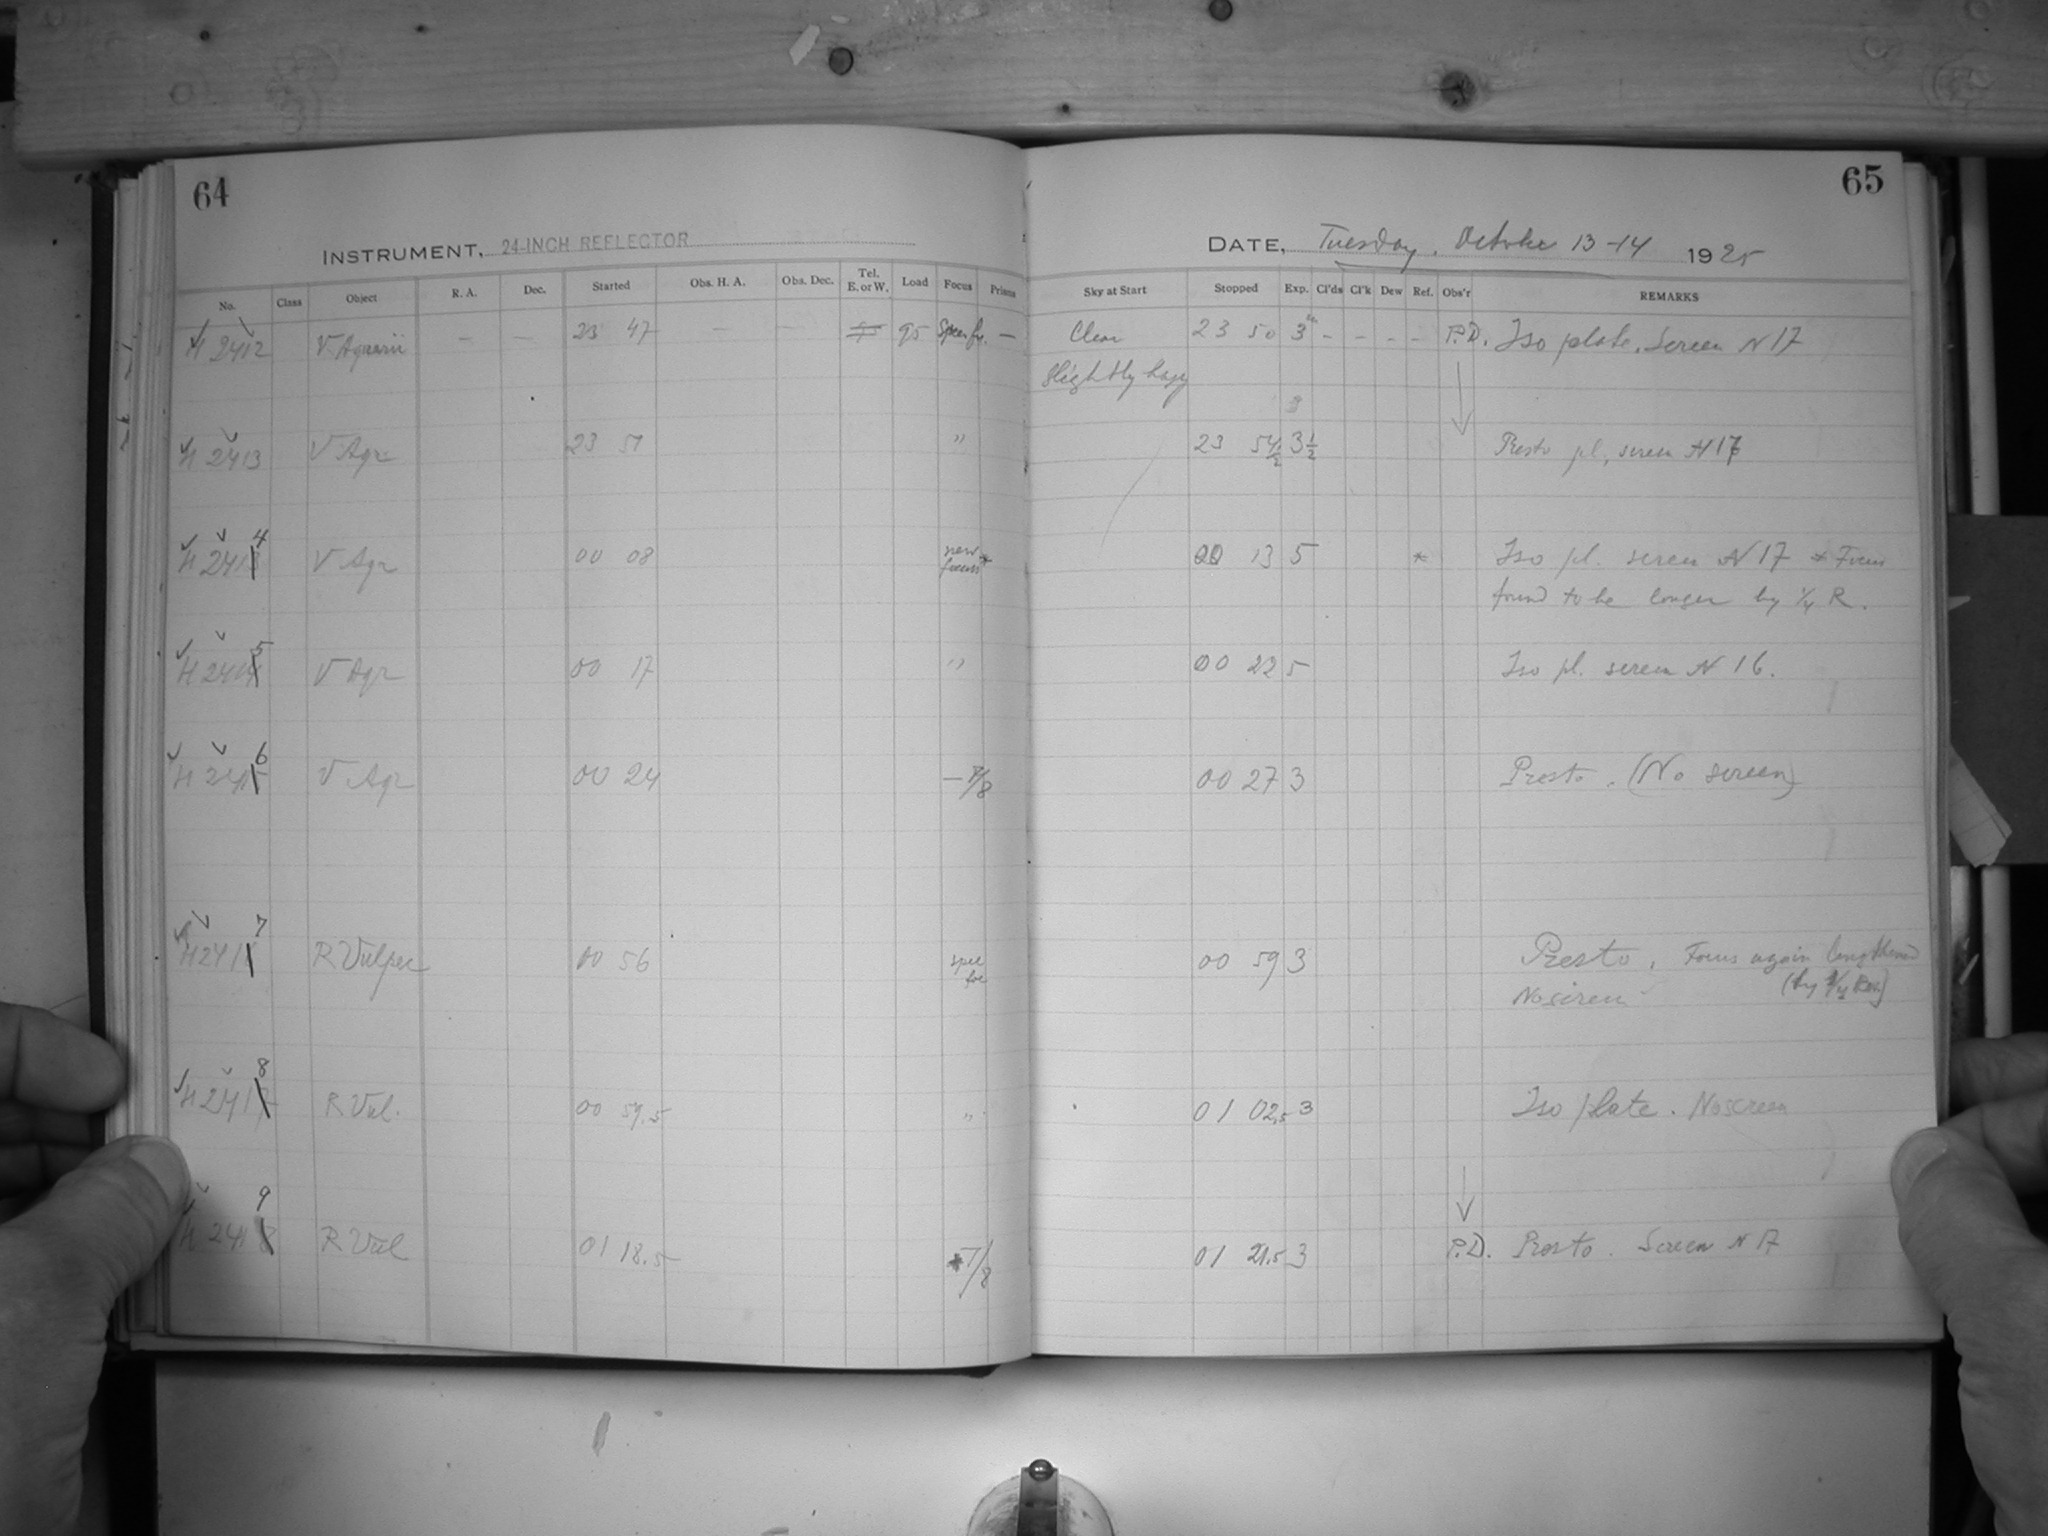 64
INSTRUMENT, 24-INCH REFLECTOR
No. Class Object R. A. Dec. Started Obs. H. A. Obs. Dec. Tel. E. or W. Load Focus Prisms
H 2412 V Aquarii — — 23 47 — — 95 —
H 2413 V Aqr 23 51 "
H 2414 V Aqr 00 08 new focus *
H 2415 V Aqr 00 17 "
H 2416 V Aqr 00 24 — 7/8
H 2417 R Vulpec 00 56 spec foc
H 2418 R Vul. 00 59.5 "
H 2419 R Vul 01 18.5 7/8
65
DATE, Tuesday, October 13-14 1925
Sky at Start Stopped Exp. Cl'ds Cl'k Dew Ref. Obs'r REMARKS
Clear 23 50 3m - - - - P.D. Iso plate, Screen N 17
Slightly hazy
23 54½ 3½ Presto pl, screen N 17
00 13 5 * Iso pl. screen N 17 * Focus
found to be longer by ¼ R.
00 22 5 Iso pl. screen N 16.
00 27 3 Presto. (No screen)
00 59 3 Presto, Focus again lengthened
No screen (by ¼ Rev)
01 02.5 3 Iso plate. No screen
01 21.5 3 P.D. Presto. Screen N 17